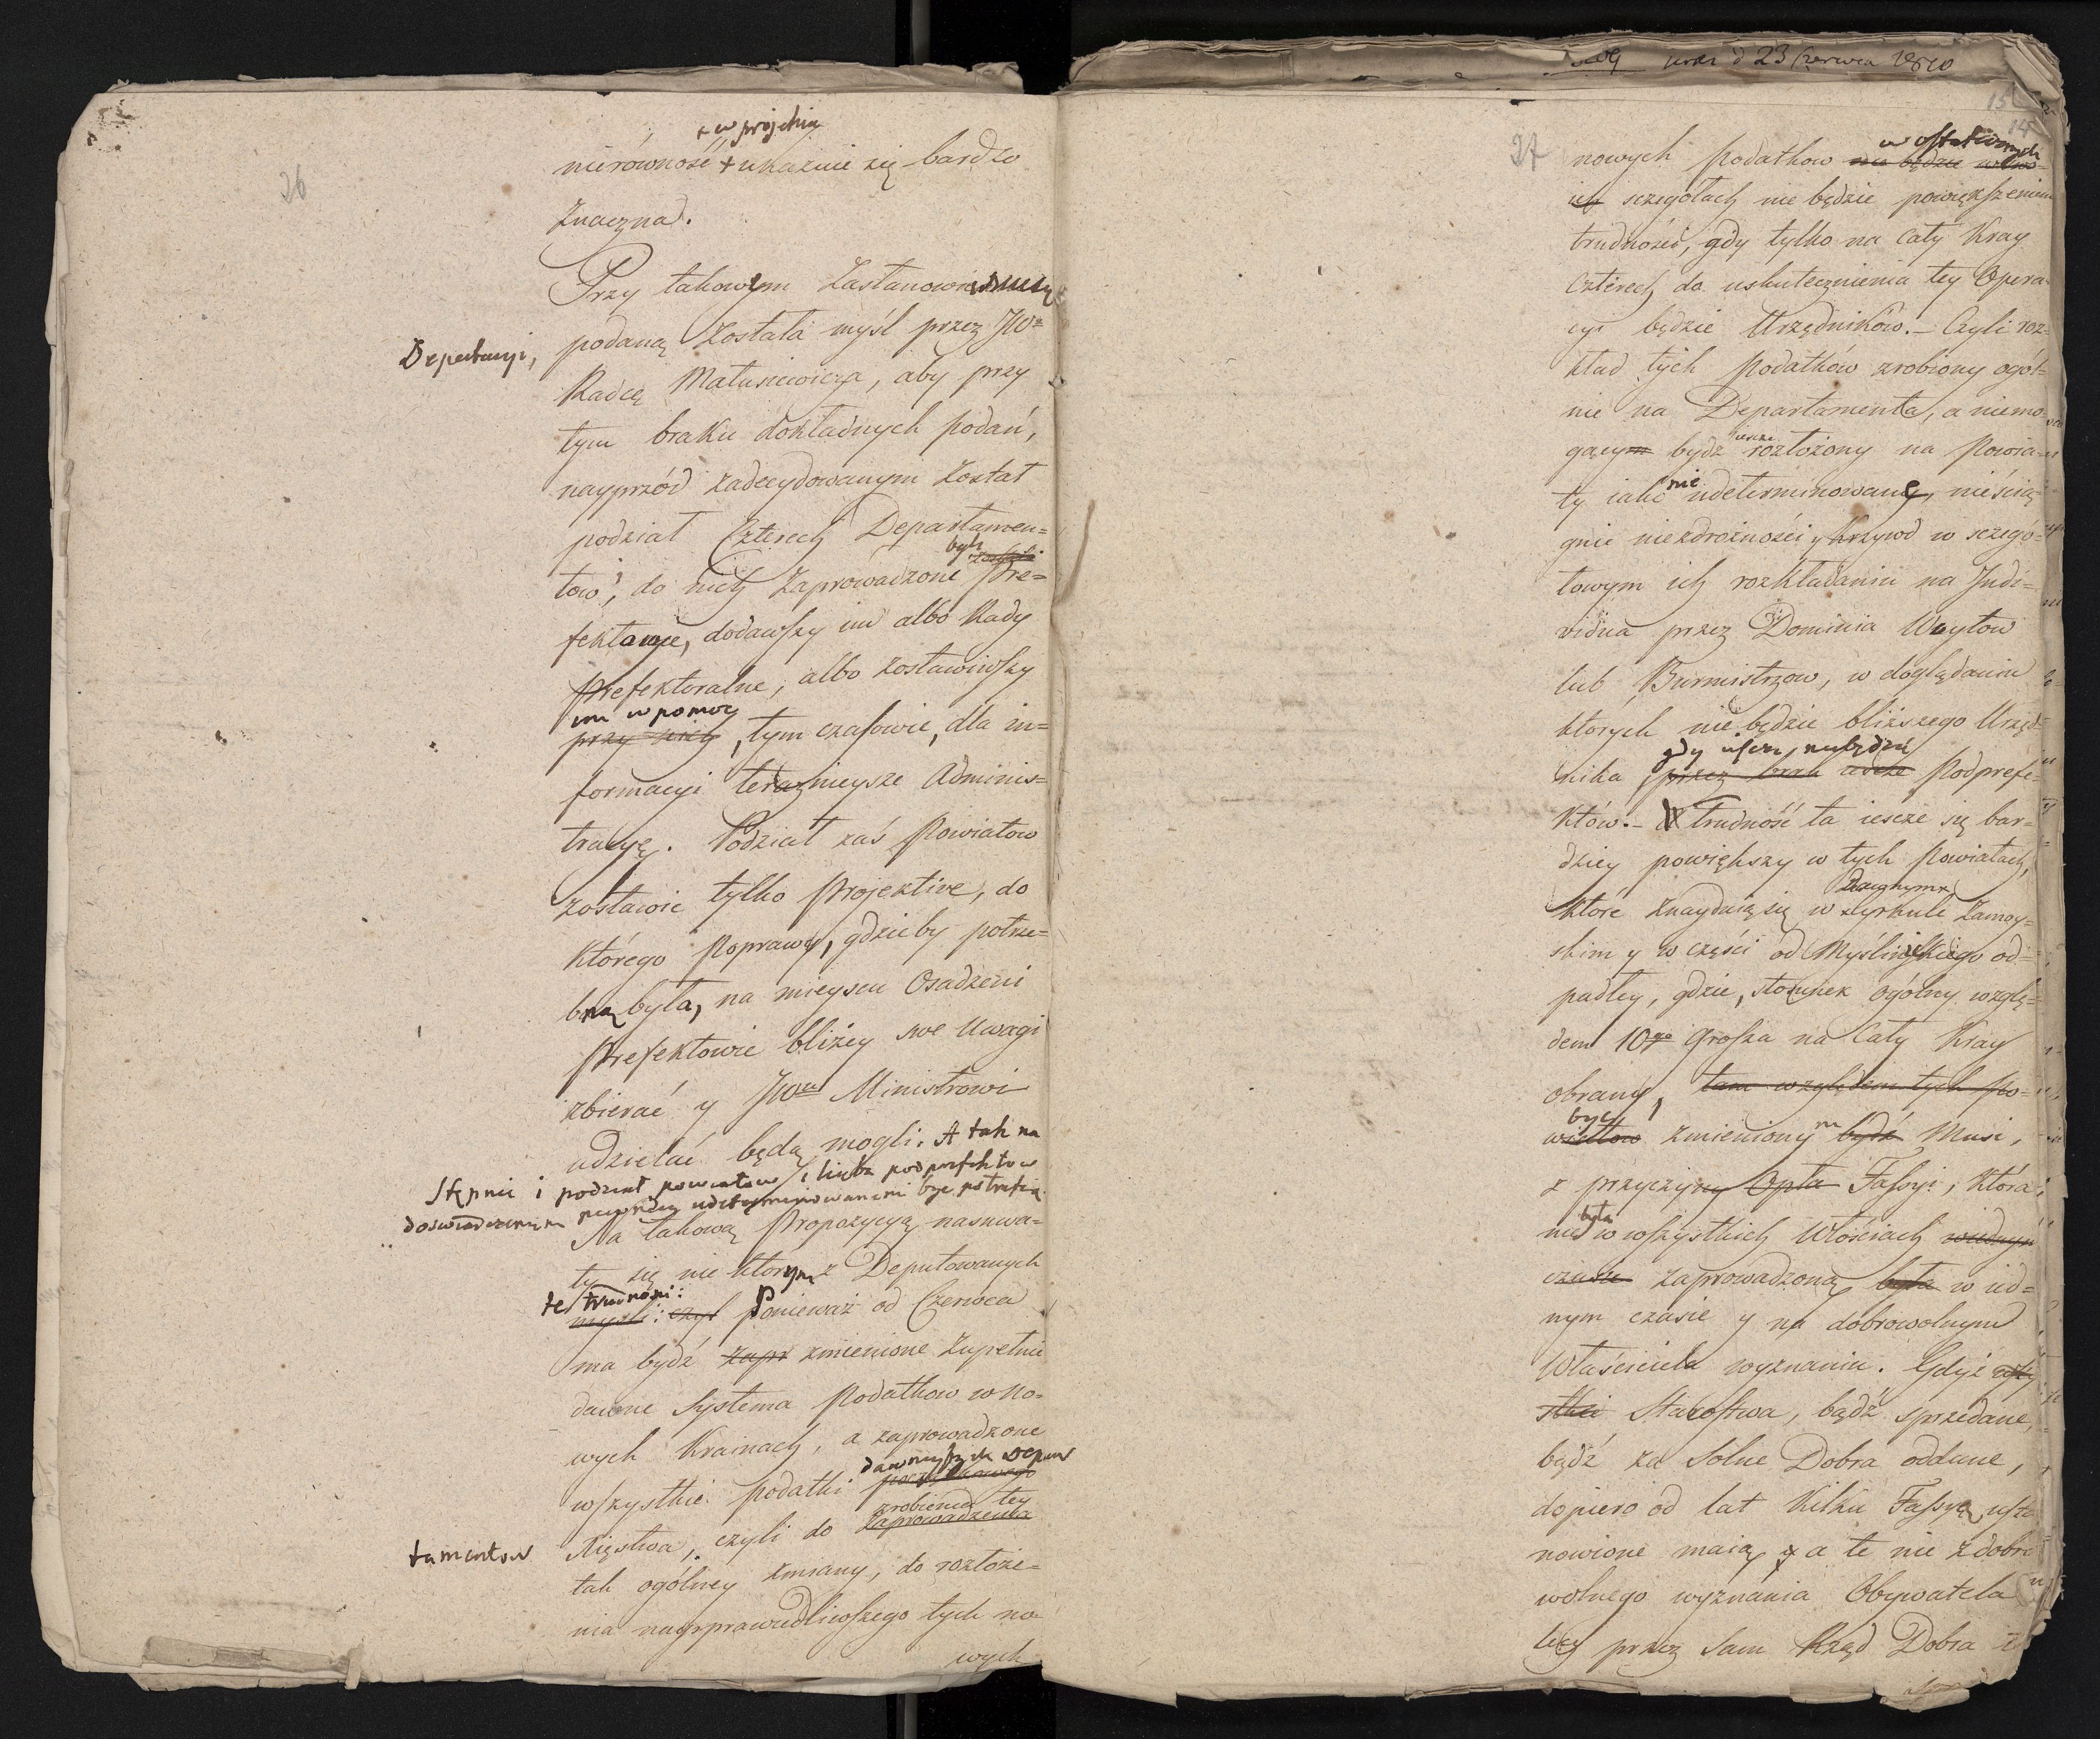 26
+ w projekcie
nierówność + ukazuie się bardzo
znaczna.
Przy takowym Zastanowieniu się
Deputacyi,
podaną została myśl przez JW°
Radcę Matusiewicza, aby przy
tym braku dokładnych podań,
nayprzód zadecydowanym został
podział Czterech Departamen=
były
tow, do nich zaprowadzone Pre=
fektury, dodawszy im albo Rady
Prefekturalne, albo zostawiwszy
im w pomoc
przy nich, tym czasowie, dla in=
formacyi teraznieysze Adminis=
tracye. Podział zaś Powiatow
zostawić tylko Projektive, do
którego Poprawy, gdzieby potrze=
bną była, na mieyscu Osadzeni
Prefektowie bliżey swe Uwagi
zbierać y JWmu Ministrowi
udzielać będą mogli. A tak na
stępnie i podział powiatow i liczba podprefektow
doswiadczeniem udeterminowanemi być potrafią.
Na takową Propozycyą nasuwa=
ły się nie ktorym z Deputowanych
te trudności:
mysli: czyl Ponieważ od Czerwca
ma bydź zapr zmienione Zupełnie
dawne Systema Podatkow w No=
wych Krainach, a zaprowadzone
dawnieyszych Depar
wszystkie podatki
zrobienia tey
tamentow
Xięstwa, czyli do zaprowadzenia
tak ogólney zmiany, do rozłoże=
nia naysprawiedliwszego tych no
wych
urz d 23 Czerwca 1810
15
14
27
w ostatecznych
nowych Podatkow nie będzie
sczegołach nie będzie powiększeniem
trudności, gdy tylko na Cały Kray
Czterech do uskutecznienia tey Opera=
cyi będzie Urzędników.– Czyli roz=
kład tych Podatków zrobiony ogól=
nie na Departamenta, a niemo=
iescze
gący bydź rozłożony na Powia=
nie
ty iako udeterminowane, nie ścią=
gnie niezdrożności y Krzywd w sczegó=
łowym ich rozkładaniu na Indi=
vidua przez Dominia Woytow
lub Burmistrzow, w doglądaniu
których nie będzie bliższego Urzęd=
gdy iescze niebędzie
nika, przez brak iescze Podprefe=
któw.– Trudność ta iescze się bar=
dziey powiększy w tych Powiatach,
Dawnym
które znayduią się w Cyrkule Zamoy=
skim y w części od Myślinickiego od=
padłey, gdzie, stosunek ogólny wzglę=
dem 10go Grosza na Cały Kray
obrany, tam względem tych Po=
być
wiatow zmieniony bydź Musi,
z przyczyny Opła Fassyi, która
była
nie w wszystkich Włościach wiednym
czasie zaprowadzoną była w ied=
nym czasie y na dobrowolnym
Właściciela wyznaniu. Gdyż wszy
stkie Starostwa, bądź sprzedane,
bądź za Solne Dobra oddane,
dopiero od lat kilku Fassye usta
nowione maią, y a te nie z dobro
wolnego wyznania Obywatela
lecz przez Sam Rząd Dobra